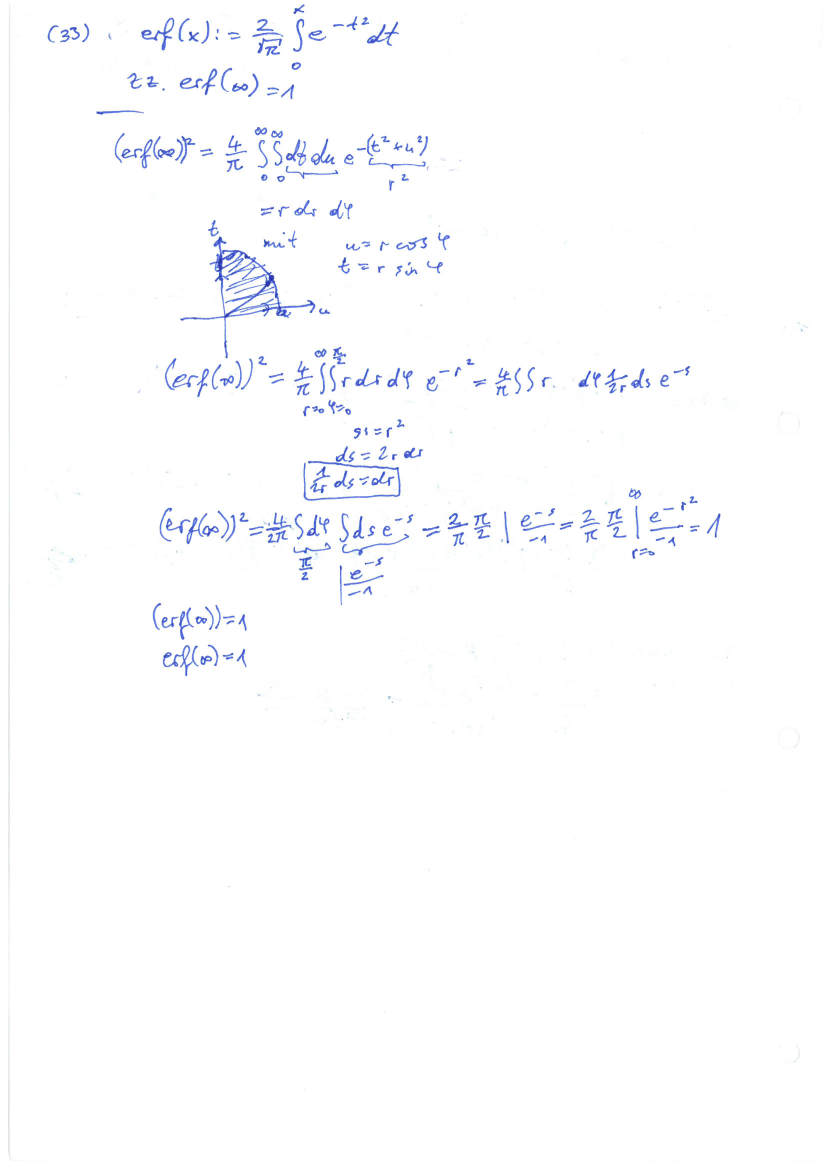 (33) . erf(x) := 2/√π ∫₀ˣ e^(-t²) dt
zz. erf(∞) = 1
(erf(∞))² = 4/π ∫₀^∞ ∫₀^∞ dt du e^-(t²+u²)
r²
= r dr dφ
t
mit u = r cos φ
t = r sin φ
u
(erf(∞))² = 4/π ∫_(r=0)^∞ ∫_(φ=0)^(π/2) r dr dφ e^(-r²) = 4/π ∫∫ r. dφ 1/(2r) ds e^(-s)
s = r²
ds = 2r dr
1/(2r) ds = dr
(erf(∞))² = 4/(2π) ∫dφ ∫ds e^(-s) = 2/π π/2 | e^(-s)/(-1) = 2/π π/2 |_(r=0)^∞ e^(-r²)/(-1) = 1
π/2 | e^(-s)/(-1)
(erf(∞)) = 1
erf(∞) = 1